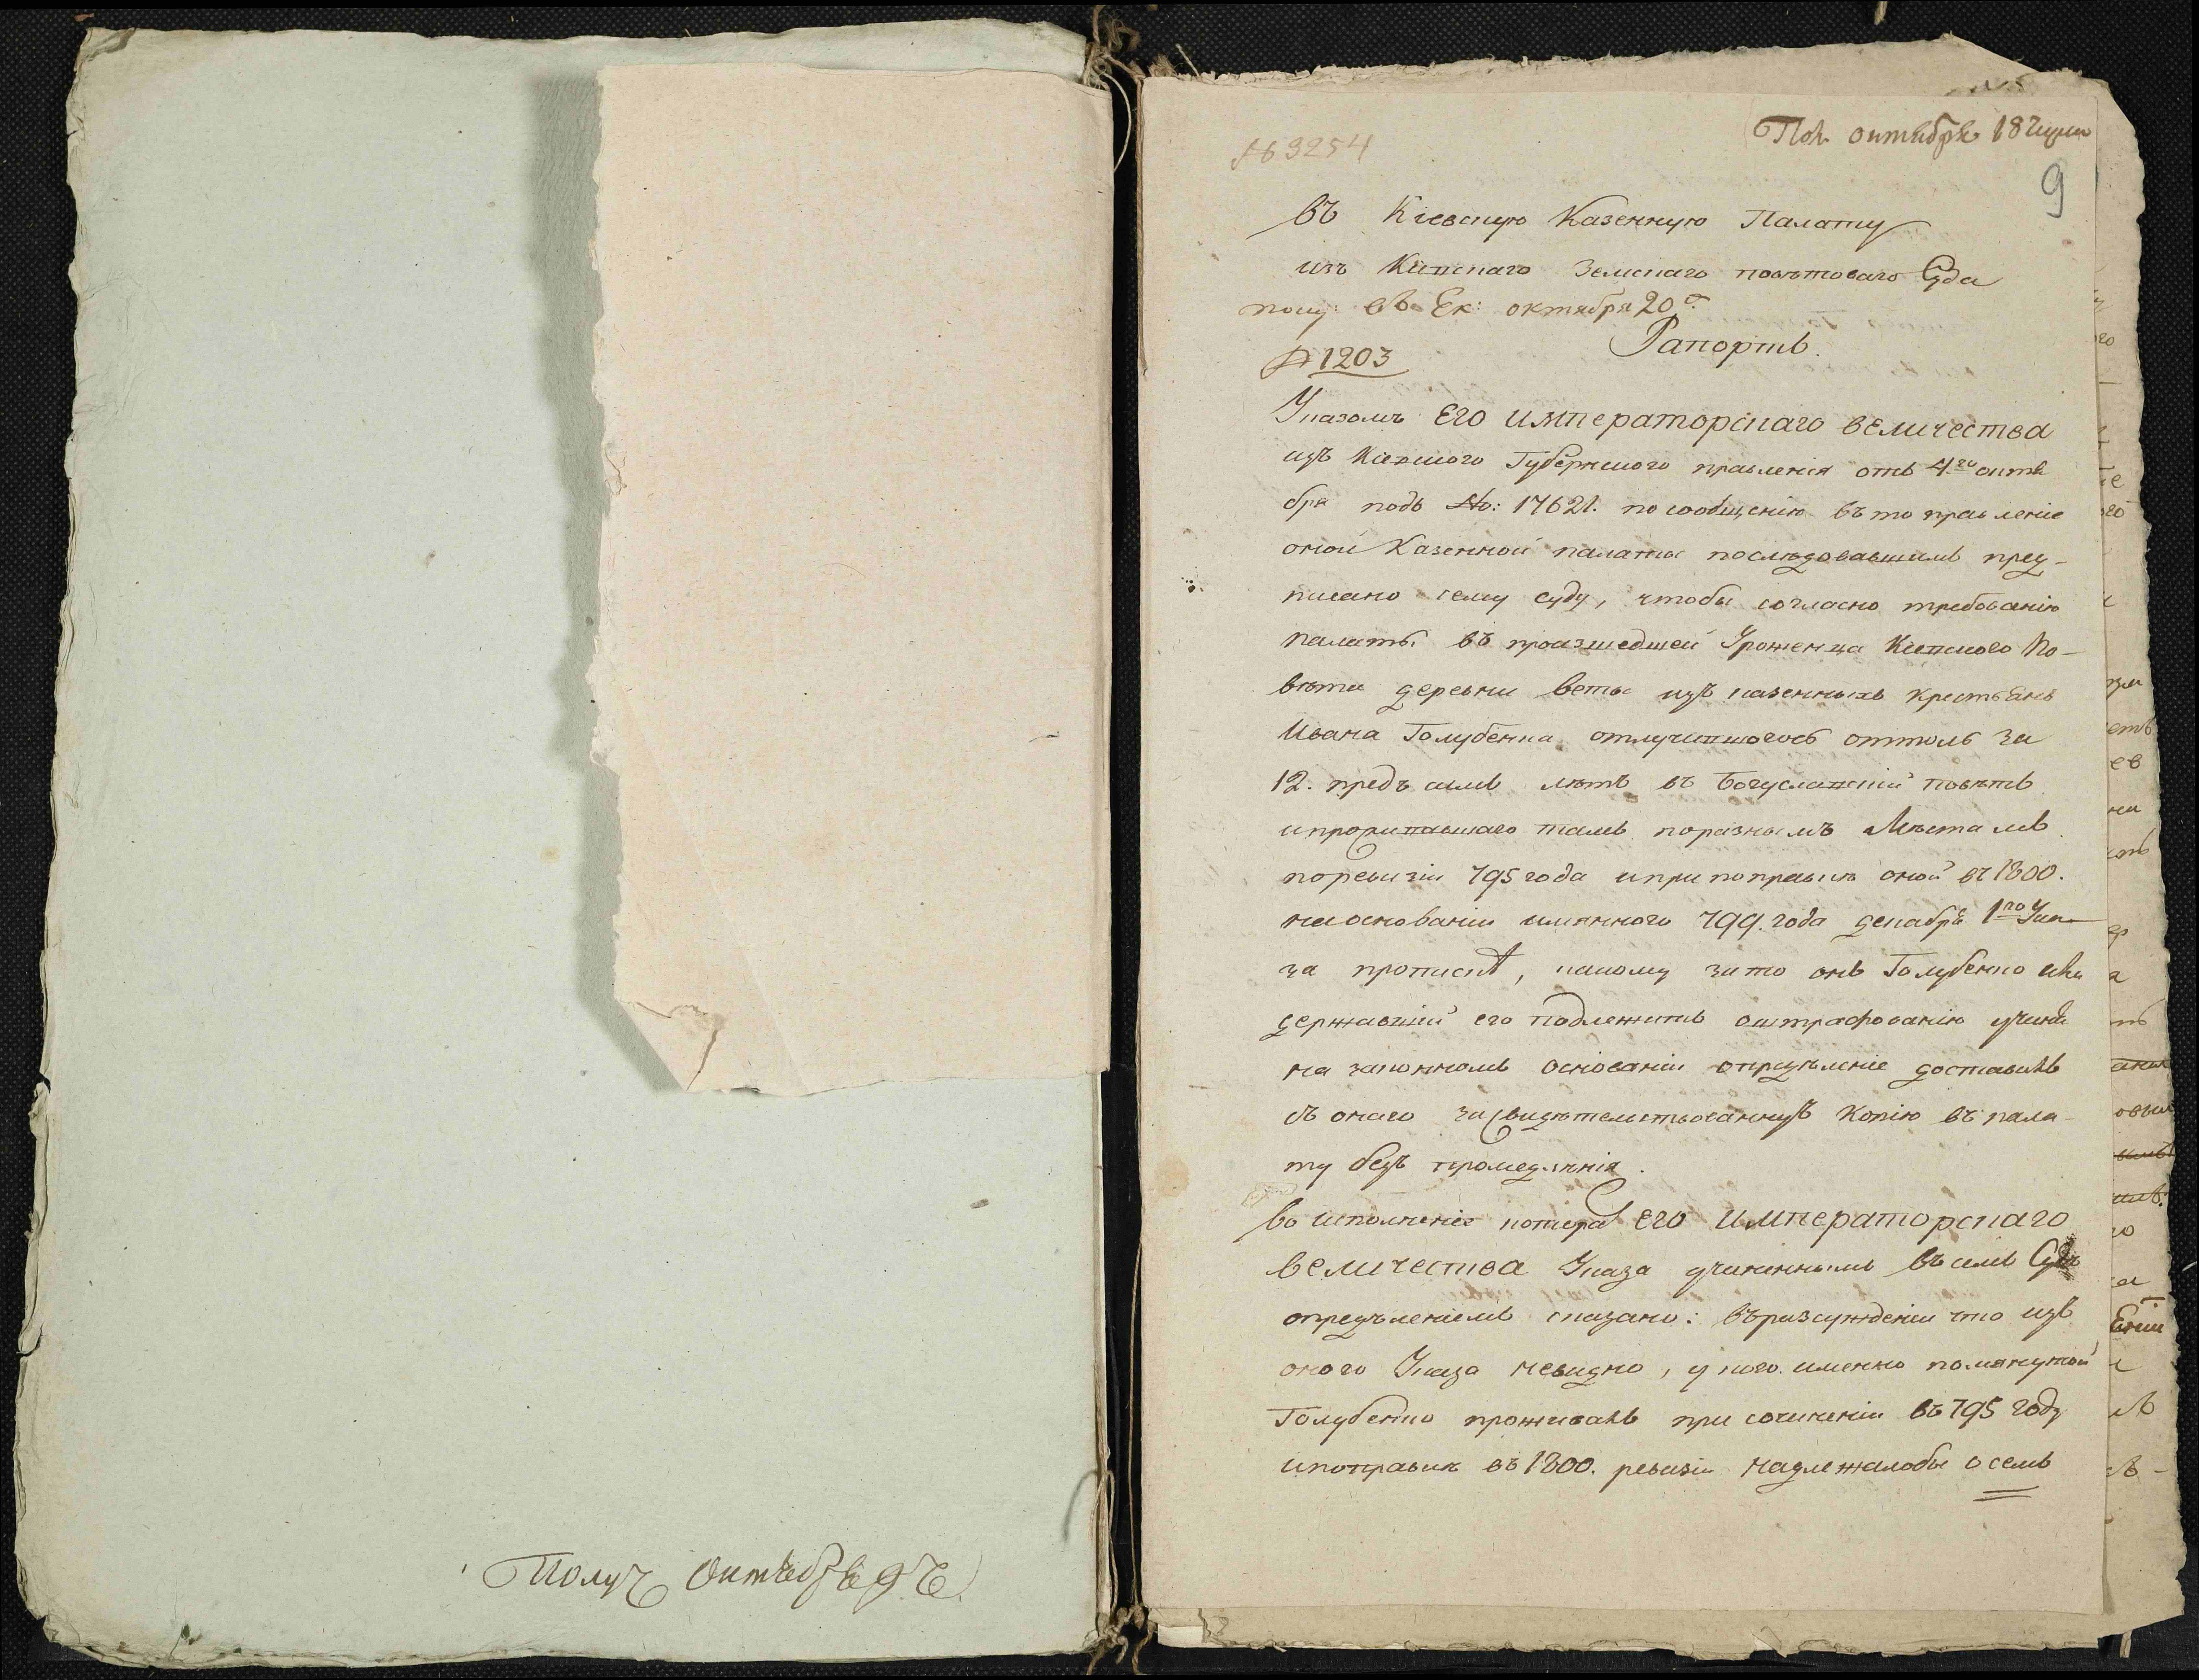 Получ Октября 9 ч
№ 3254
Пол октября 18 числа
9
въ Кіевскую Казенную Палату
изъ Кіевскаго Земскаго повѣтоваго Суда
полу: въ Ек: октября 20г
Рапортъ.
№ 1203
Указомъ ЕГО ИМПЕРАТОРСКАГО ВЕЛИЧЕСТВА
изъ Кіевского Губернского правленія отъ 4го октя
бря подъ №: 17621. по сообщенію въ то правленіе
оной Казенной палаты послѣдовавшимъ пред-
писано сему суду, чтобы согласно требованію
палаты въ произшедшей Уроженца Кіевского По-
вѣта деревни Веты изъ казенныхъ крестьянъ
Ивана Голубенка отлучившогось оттоль за
12. предъ симъ лѣтъ въ Богуславскій повѣтъ
и проживавшаго тамъ по разнымъ Мѣстамъ
по ревизіи 795 года и при поправкѣ оной въ 1800.
на основаніи имянного 799. года декабря 1го Ука
за пропискѣ, какому за то онъ Голубенко или
державшій его подлежитъ оштрафованію учиня
на законномъ основаніи опредѣленіе доставилъ
съ онаго засвидѣтельствованную Копію въ пала-
ту безъ промедленія.
Во исполненіе которого ЕГО ИМПЕРАТОРСКАГО
ВЕЛИЧЕСТВА Указа учиненнымъ въ семъ Судѣ
опредѣленіемъ сказано: въ разсужденіи что изъ
оного Указа невидно, у кого именно помянутой
Голубенко проживалъ при сочиненіи въ 795 году
и поправкѣ въ 1800. ревизіи надлежалобы о семъ